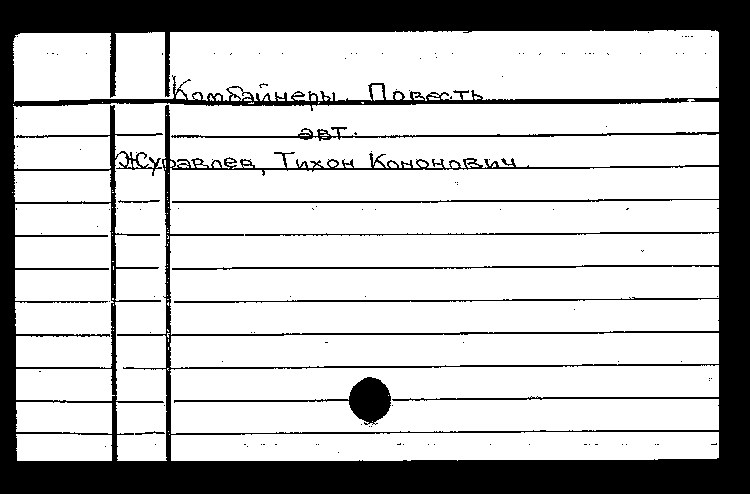 Комбайнеры. Повесть
авт.
Журавлев, Тихон Кононович.